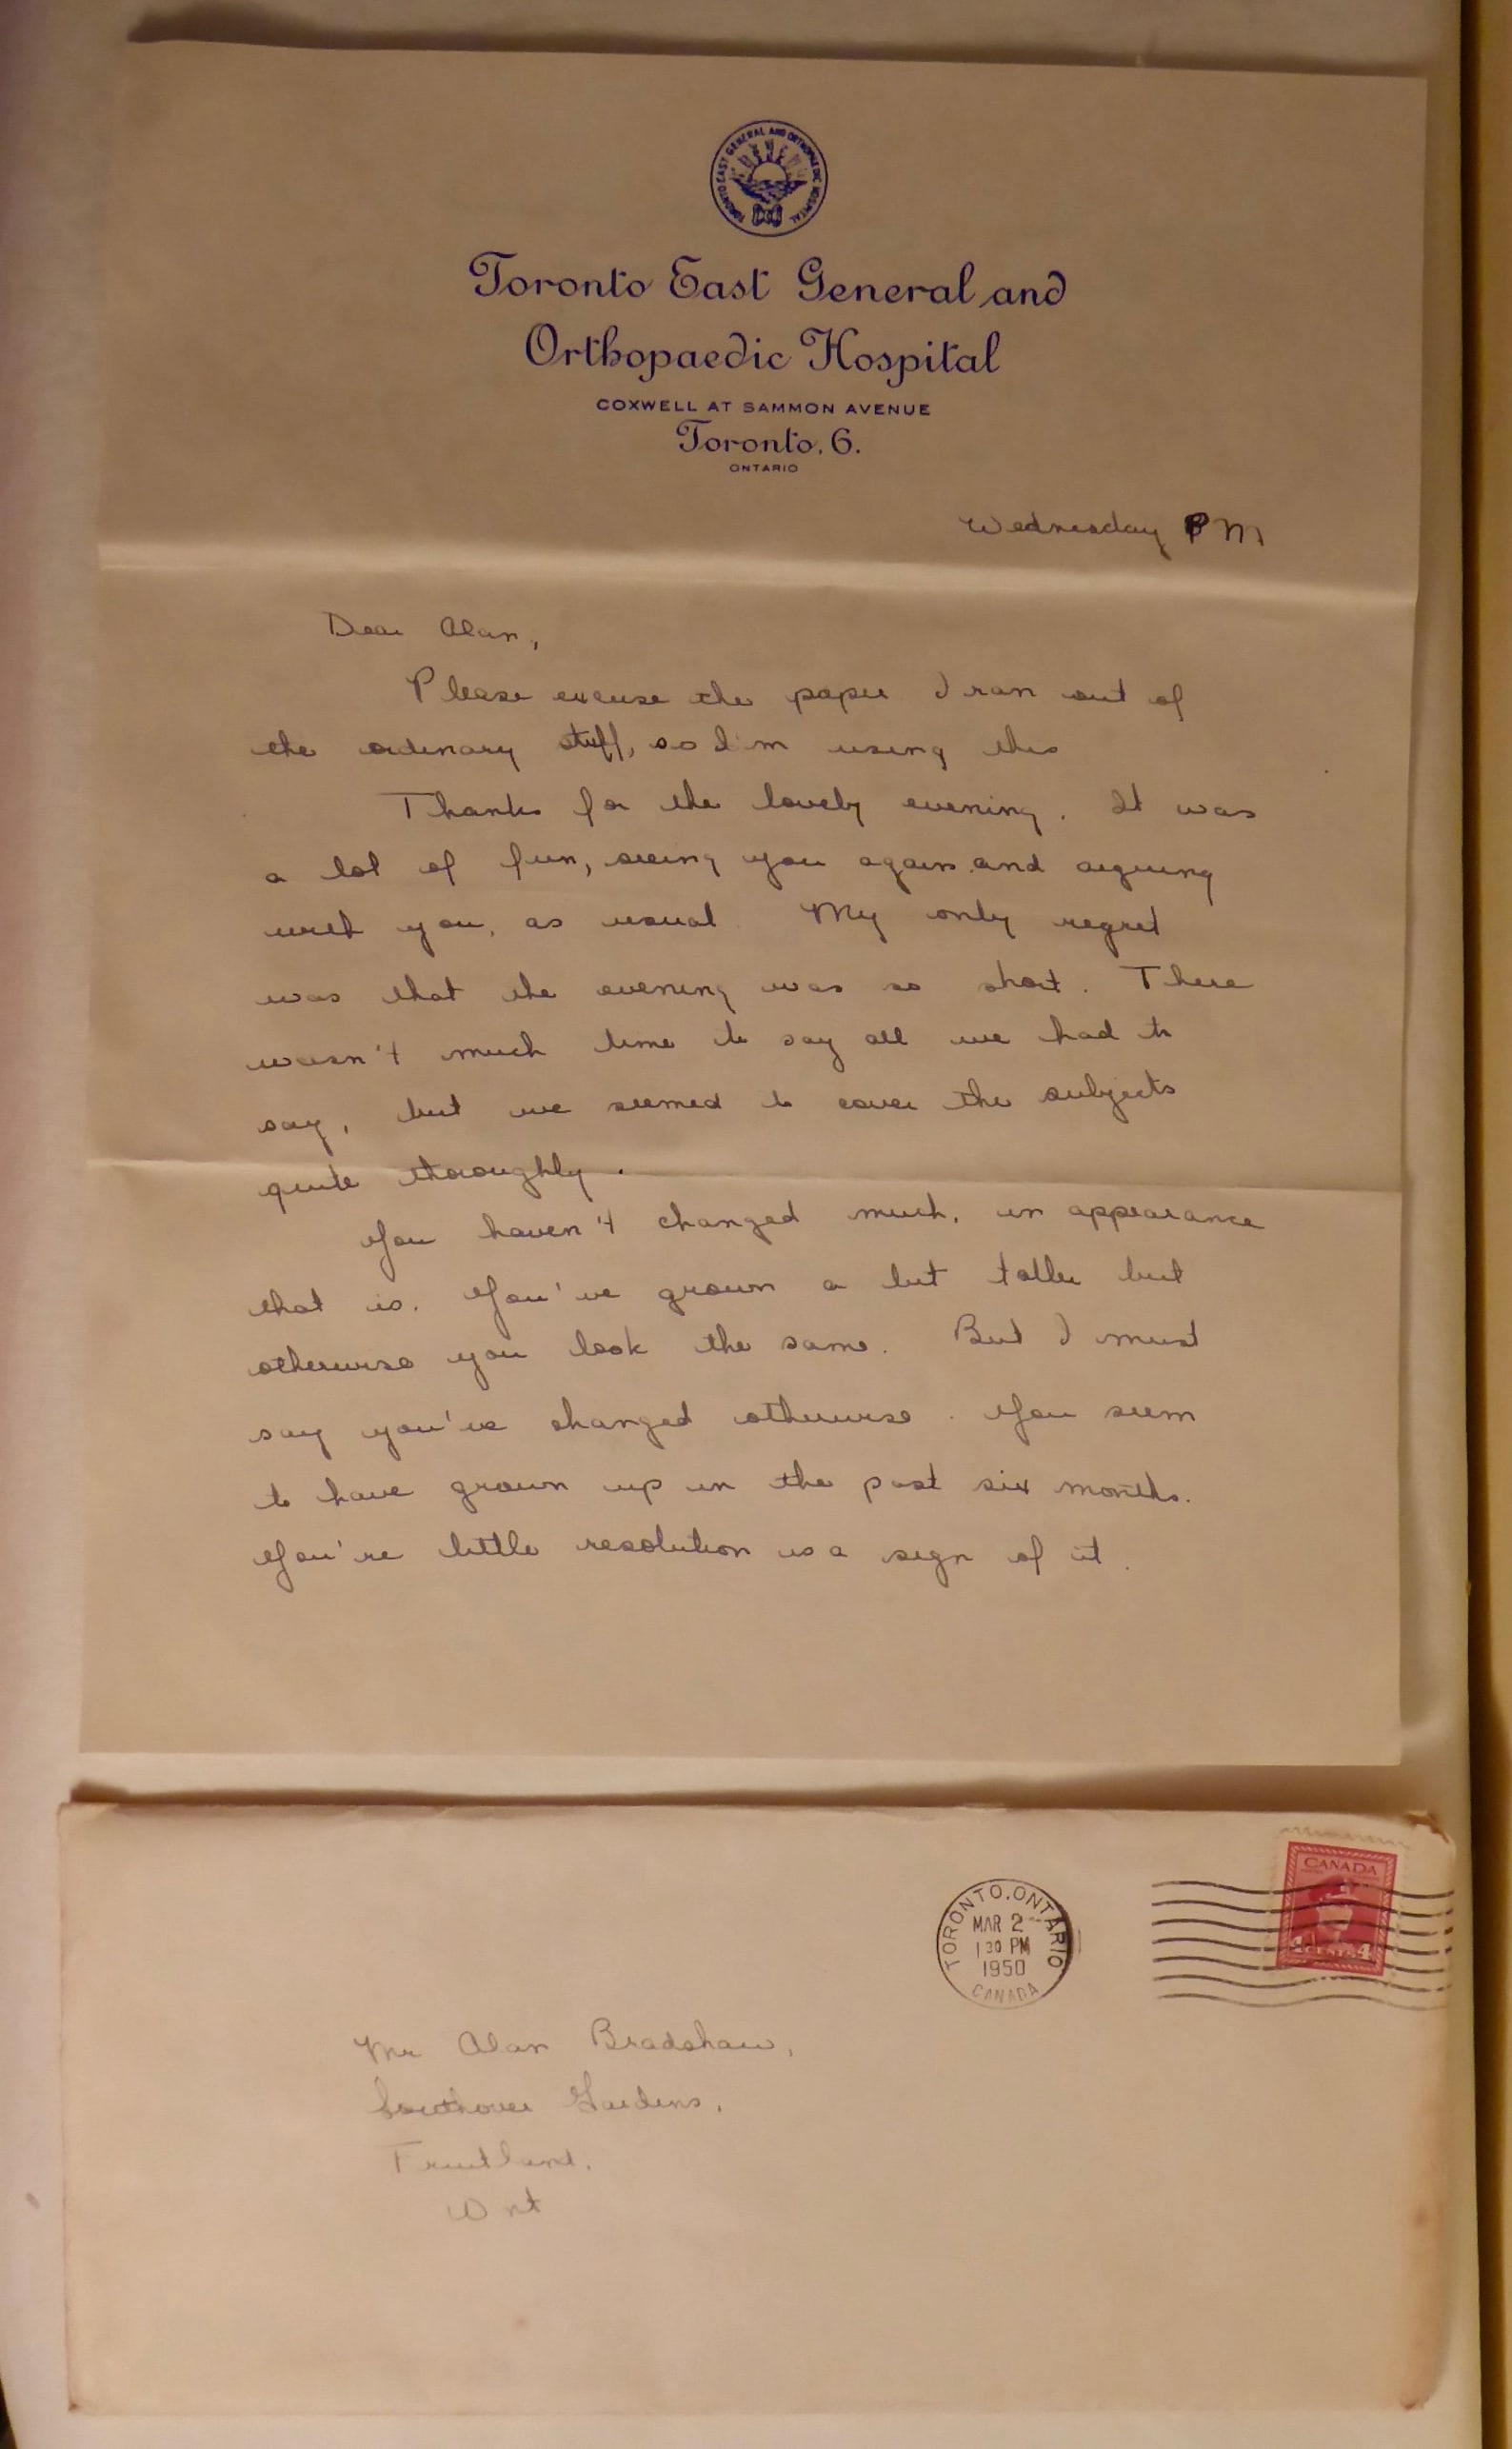 TORONTO EAST GENERAL AND ORTHOPAEDIC HOSPITAL
Toronto East General and
Orthopaedic Hospital
COXWELL AT SAMMON AVENUE
Toronto. 6.
ONTARIO
Wednesday PM
Dear Alan,
Please excuse the paper I ran out of
the ordinary stuff, so I'm using this
Thanks for the lovely evening. It was
a lot of fun, seeing you again and arguing
with you, as usual. My only regret
was that the evening was so short. There
wasn't much time to say all we had to
say, but we seemed to cover the subjects
quite thoroughly.
You haven't changed much, in appearance
that is. You've grown a bit taller but
otherwise you look the same. But I must
say you've changed otherwise. You seem
to have grown up in the past six months.
You're little resolution is a sign of it.
CANADA
4 CENTS 4
TORONTO, ONTARIO
MAR 2
1 30 PM
1950
CANADA
Mr Alan Bradshaw,
Gardens,
Fruitland.
Ont